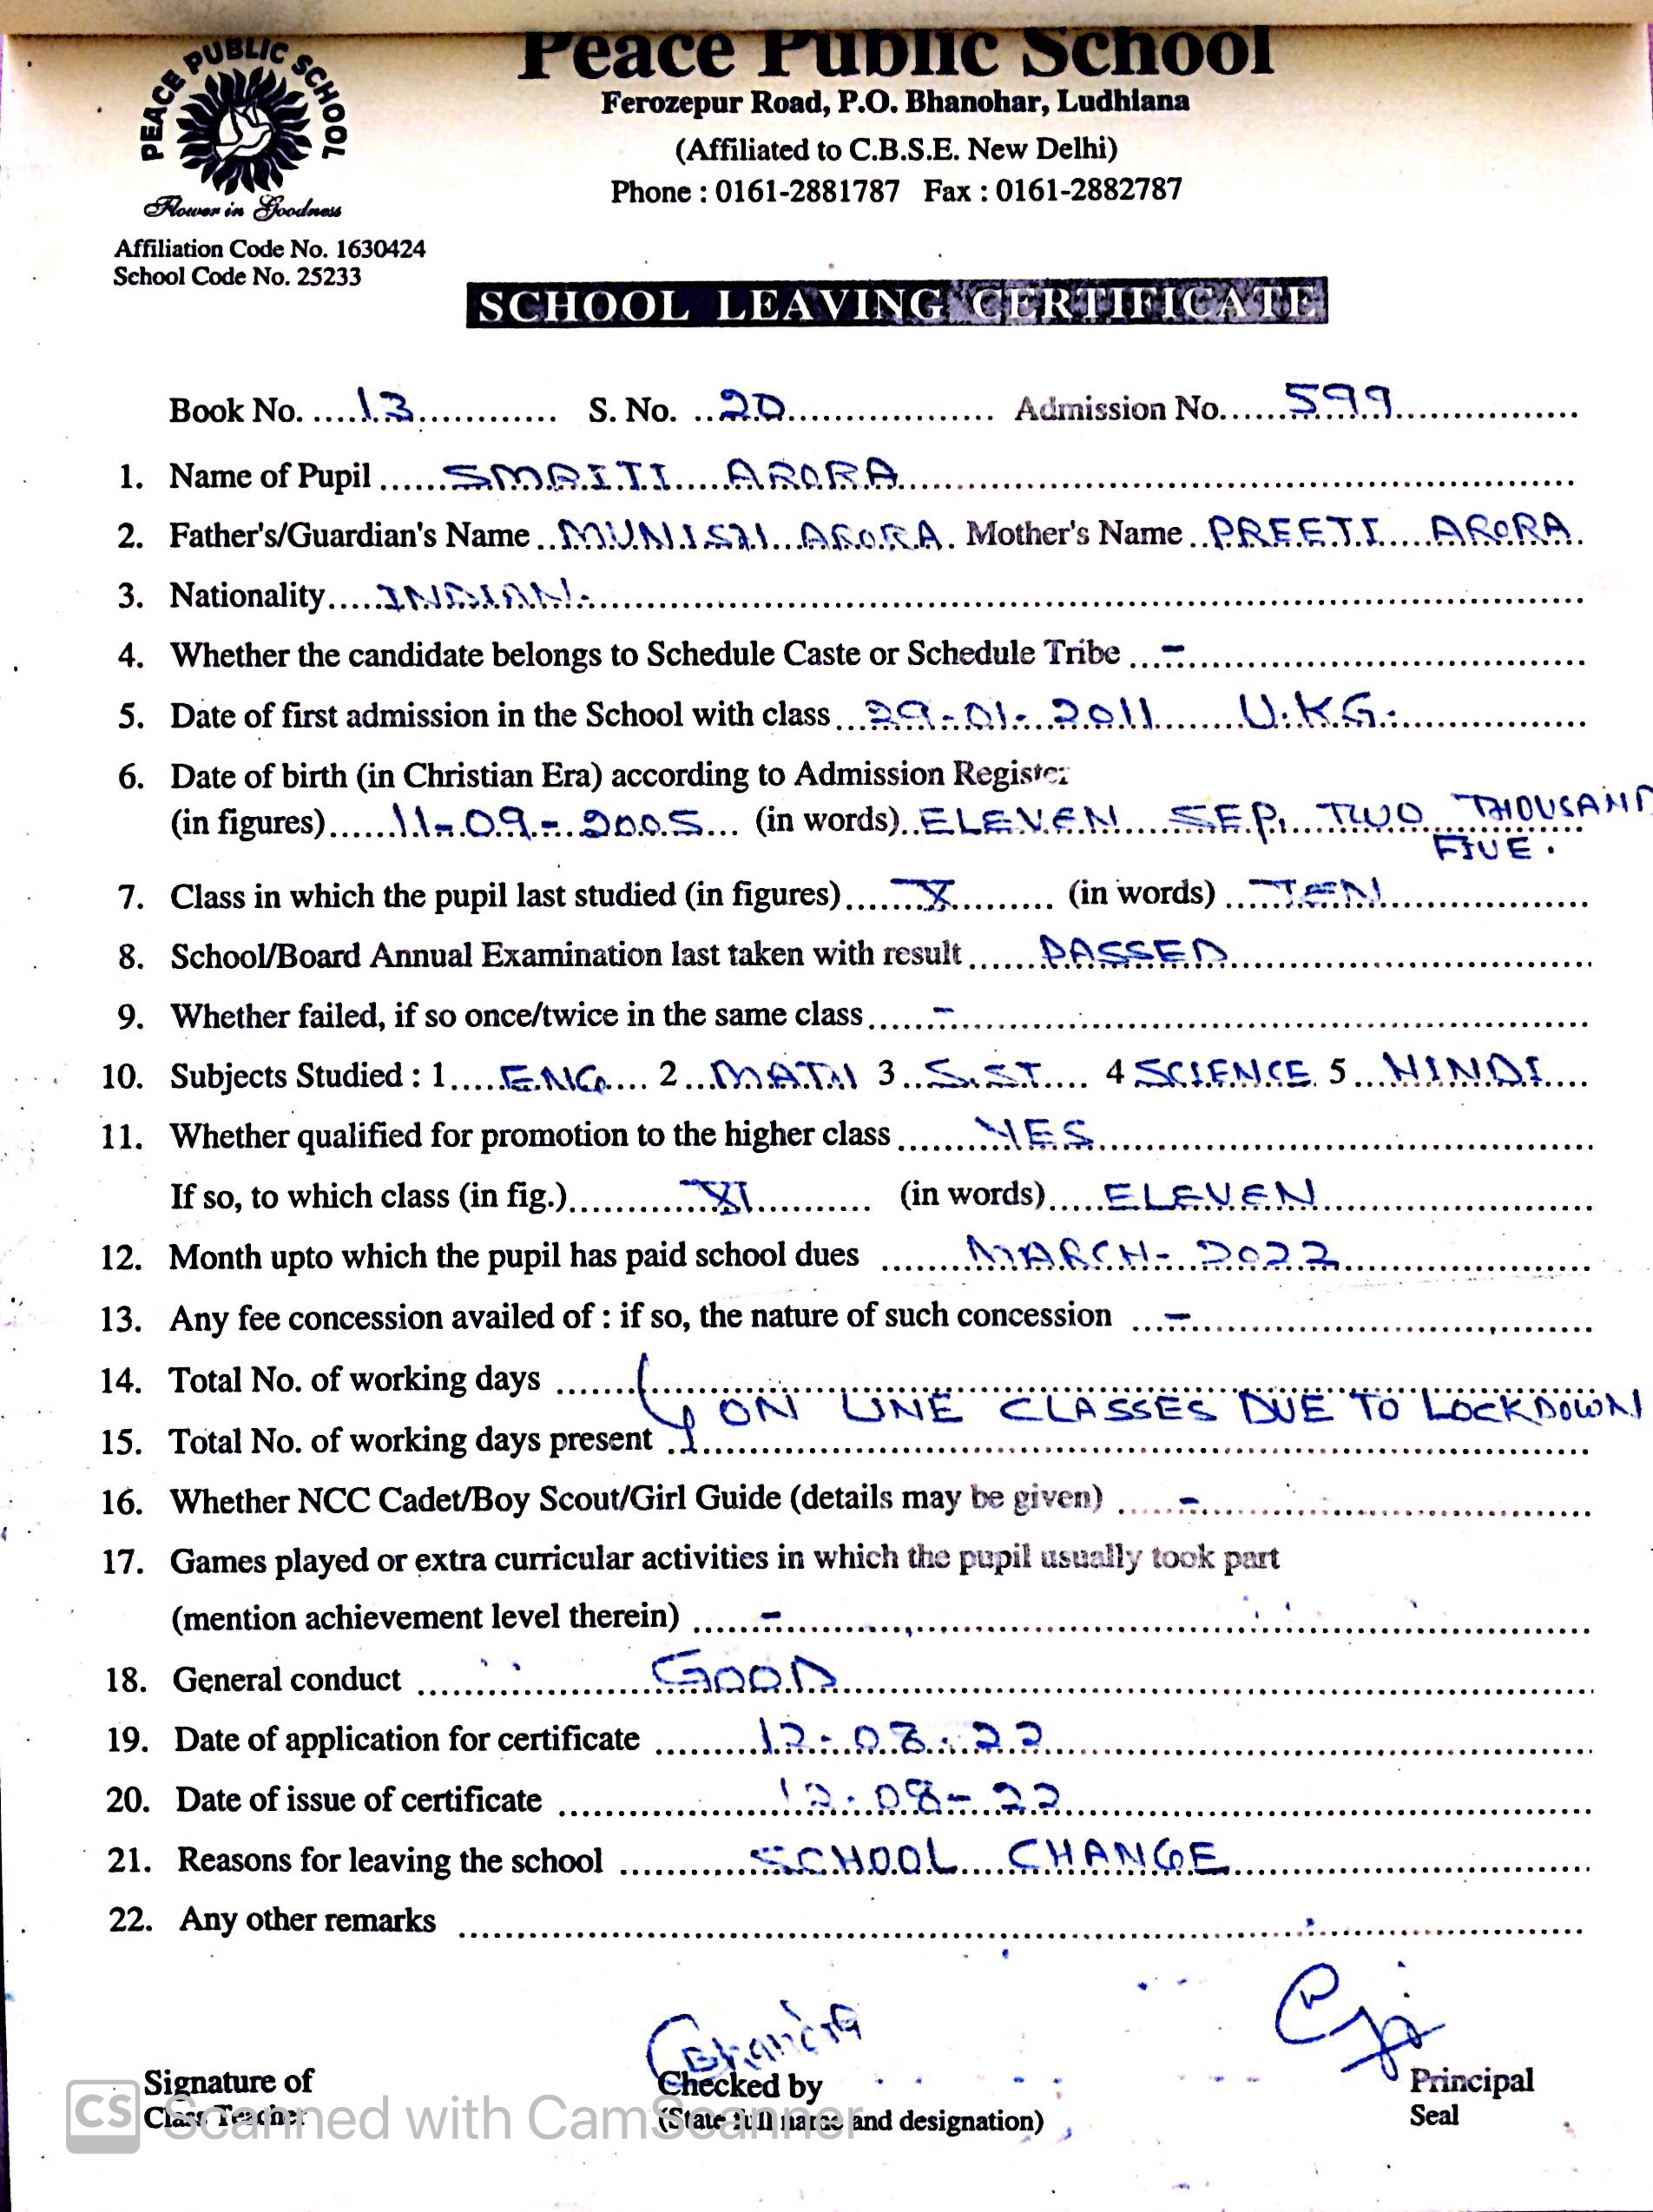 PEACE PUBLIC SCHOOL
Flower in Goodness
Affiliation Code No. 1630424
School Code No. 25233
Peace Public School
Ferozepur Road, P.O. Bhanohar, Ludhiana
(Affiliated to C.B.S.E. New Delhi)
Phone : 0161-2881787 Fax : 0161-2882787
SCHOOL LEAVING CERTIFICATE
Book No. 13 S. No. 20 Admission No. 599
1. Name of Pupil SMRITI ARORA
2. Father's/Guardian's Name MUNISH ARORA. Mother's Name PREETI ARORA.
3. Nationality INDIAN.
4. Whether the candidate belongs to Schedule Caste or Schedule Tribe -
5. Date of first admission in the School with class 29-01-2011 U.K.G.
6. Date of birth (in Christian Era) according to Admission Register
(in figures) 11-09-2005 (in words) ELEVEN SEP. TWO THOUSAND
FIVE.
7. Class in which the pupil last studied (in figures) X (in words) TEN
8. School/Board Annual Examination last taken with result PASSED
9. Whether failed, if so once/twice in the same class -
10. Subjects Studied : 1 ENG 2 MATH 3 S.ST 4 SCIENCE 5 HINDI
11. Whether qualified for promotion to the higher class YES
If so, to which class (in fig.) XI (in words) ELEVEN
12. Month upto which the pupil has paid school dues MARCH-2022
13. Any fee concession availed of : if so, the nature of such concession -
14. Total No. of working days
ON LINE CLASSES DUE TO LOCKDOWN
15. Total No. of working days present
16. Whether NCC Cadet/Boy Scout/Girl Guide (details may be given) -
17. Games played or extra curricular activities in which the pupil usually took part
(mention achievement level therein) -
18. General conduct GOOD
19. Date of application for certificate 12-08-22
20. Date of issue of certificate 12-08-22
21. Reasons for leaving the school SCHOOL CHANGE
22. Any other remarks
Signature of
Class Teacher
Checked by
(State full name and designation)
Principal
Seal
CS Scanned with CamScanner